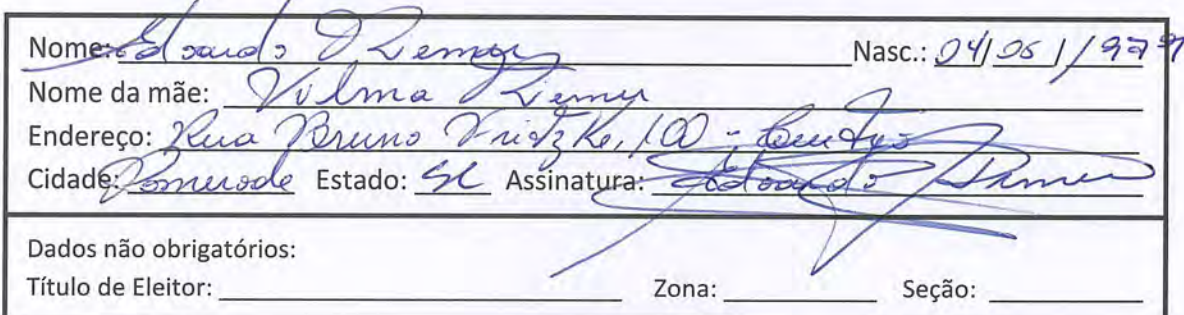 Nome: Edoardo Nasc.: 04/05/1979
Nome da mãe: Vilma
Endereço: Rua Bruno 100 - Centro
Cidade: Pomerode Estado: SC Assinatura: Edoardo
Dados não obrigatórios:
Título de Eleitor: Zona: Seção: